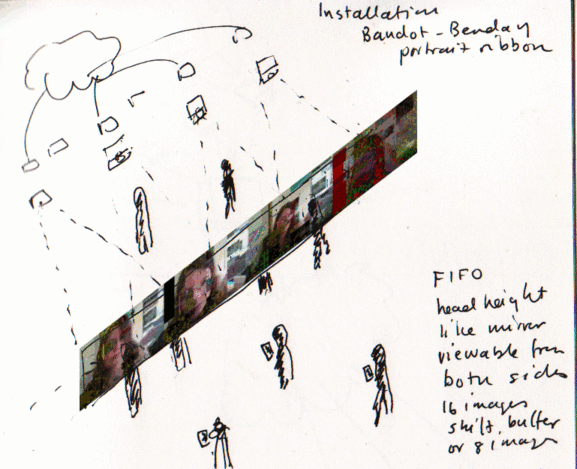 Installation
Baudot-Benday
portrait ribbon
FIFO
head height
like mirror
viewable from
both sides
16 images
shift, buffer
or 8 images